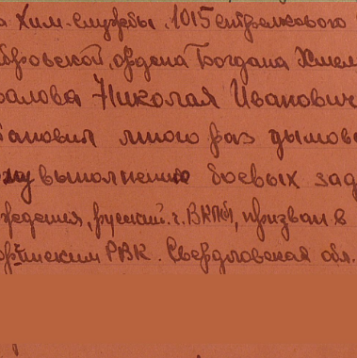 Хим. службы 1015 стрелкового
бровской, ордена Богдана Хмел
алова Николая Иванович
ановил много раз дымов
му выполнению боевых зад
ждения, русский. ч. ВКПб, призван в
ским РВК. Свердловская обл.